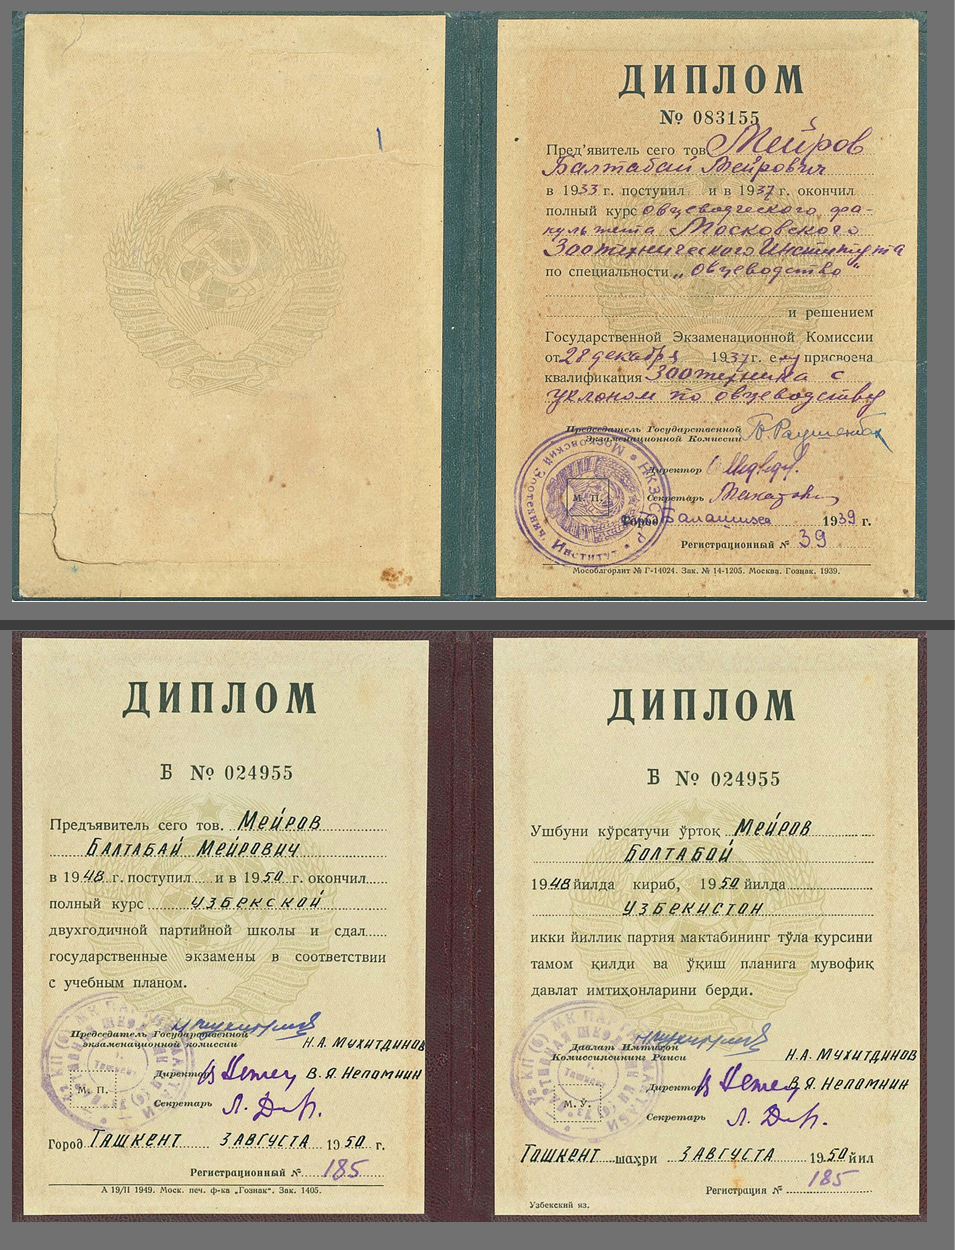 ДИПЛОМ
№ 083155
Пред'явитель сего тов. Мейров
Балтабай Мейрович
в 1933 г. поступил и в 1937 г. окончил
полный курс овцеводческого фа-
культета Московского
Зоотехнического Института
по специальности „Овцеводство"
и решением
Государственной Экзаменационной Комиссии
от 28 декабря 1937 г. ему присвоена
квалификация Зоотехника с
уклоном по овцеводству
Председатель Государственной
Экзаменационной Комиссии
Директор
Секретарь
М. П.
Город Балашиха 1939 г.
Регистрационный № 39
Мособлгорлит № Г-14024. Зак. № 14-1205. Москва. Гознак. 1939.
ДИПЛОМ
Б № 024955
Предъявитель сего тов. Мейров
Балтабай Мейрович
в 1948 г. поступил и в 1950 г. окончил
полный курс Узбекской
двухгодичной партийной школы и сдал
государственные экзамены в соответствии
с учебным планом.
Председатель Государственной
экзаменационной комиссии Н.А. Мухитдинов
Директор В.Я. Непомнин
М. П.
Секретарь
Город Ташкент 3 августа 1950 г.
Регистрационный № 185
А 19/II 1949. Моск. печ. ф-ка „Гознак". Зак. 1405.
ДИПЛОМ
Б № 024955
Ушбуни кўрсатучи ўртоқ Мейров
Болтабой
1948 йилда кириб, 1950 йилда
Узбекистон
икки йиллик партия мактабининг тўла курсини
тамом қилди ва ўқиш планига мувофиқ
давлат имтиҳонларини берди.
Давлат Имтиҳон
Комиссиясининг Раиси Н.А. Мухитдинов
Директор В.Я. Непомнин
М. Ў.
Секретарь
Тошкент шаҳри 3 августа 1950 йил
Регистрация № 185
Узбекский яз.